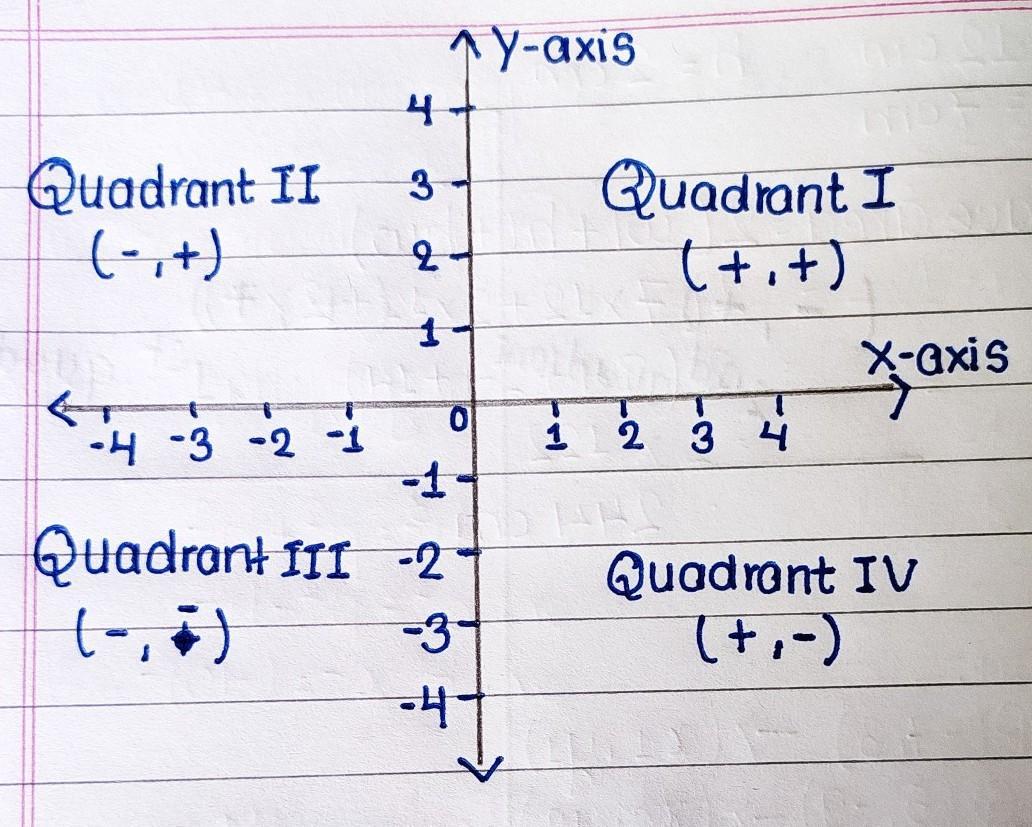 Y-axis
4
Quadrant II
3
Quadrant I
(-,+)
2
(+,+)
1
X-axis
-4 -3 -2 -1 0 1 2 3 4
-1
Quadrant III
-2
Quadrant IV
(-,-)
-3
(+,-)
-4